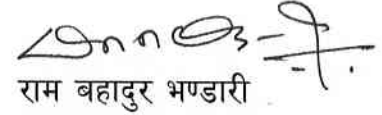 राम बहादुर भण्डारी